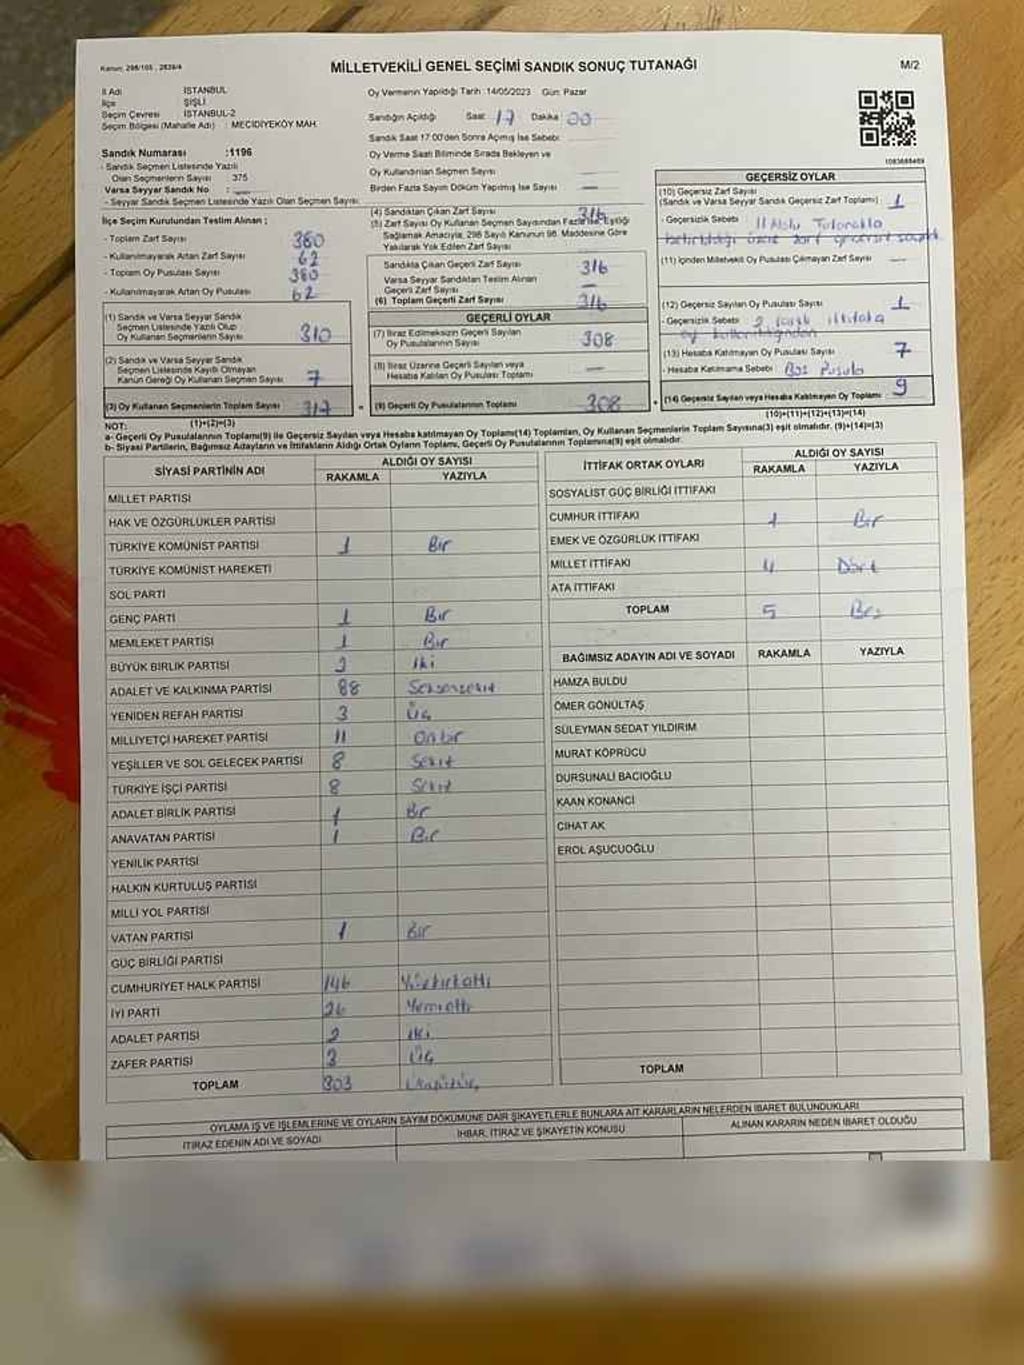 Kanun: 298/105 , 2839/4
MİLLETVEKİLİ GENEL SEÇİMİ SANDIK SONUÇ TUTANAĞI
M/2
İl Adı İSTANBUL
İlçe ŞİŞLİ
Seçim Çevresi İSTANBUL-2
Seçim Bölgesi (Mahalle Adı) : MECİDİYEKÖY MAH.
Sandık Numarası :1196
- Sandık Seçmen Listesinde Yazılı
Olan Seçmenlerin Sayısı 375
Varsa Seyyar Sandık No :
- Seyyar Sandık Seçmen Listesinde Yazılı Olan Seçmen Sayısı:
Oy Vermenin Yapıldığı Tarih :14/05/2023 Gün: Pazar
Sandığın Açıldığı Saat 17 Dakika 00
Sandık Saat 17:00'den Sonra Açılmış İse Sebebi:
Oy Verme Saati Bitiminde Sırada Bekleyen ve
Oy Kullandırılan Seçmen Sayısı
Birden Fazla Sayım Döküm Yapılmış İse Sayısı —
1083688469
İlçe Seçim Kurulundan Teslim Alınan ;
- Toplam Zarf Sayısı 380
- Kullanılmayarak Artan Zarf Sayısı 62
- Toplam Oy Pusulası Sayısı 380
- Kullanılmayarak Artan Oy Pusulası 62
(1) Sandık ve Varsa Seyyar Sandık
Seçmen Listesinde Yazılı Olup
Oy Kullanan Seçmenlerin Sayısı 310
(2) Sandık ve Varsa Seyyar Sandık
Seçmen Listesinde Kayıtlı Olmayan
Kanun Gereği Oy Kullanan Seçmen Sayısı 7
(3) Oy Kullanan Seçmenlerin Toplam Sayısı 317
(4) Sandıktan Çıkan Zarf Sayısı 316
(5) Zarf Sayısı Oy Kullanan Seçmen Sayısından Fazla ise, Eşitliği
Sağlamak Amacıyla, 298 Sayılı Kanunun 98. Maddesine Göre
Yakılarak Yok Edilen Zarf Sayısı
Sandıkta Çıkan Geçerli Zarf Sayısı 316
Varsa Seyyar Sandıktan Teslim Alınan
Geçerli Zarf Sayısı —
(6) Toplam Geçerli Zarf Sayısı 316
GEÇERLİ OYLAR
(7) İtiraz Edilmeksizin Geçerli Sayılan
Oy Pusulalarının Sayısı 308
(8) İtiraz Üzerine Geçerli Sayılan veya
Hesaba Katılan Oy Pusulası Toplamı —
= (9) Geçerli Oy Pusulalarının Toplamı 308
GEÇERSİZ OYLAR
(10) Geçersiz Zarf Sayısı
(Sandık ve Varsa Seyyar Sandık Geçersiz Zarf Toplamı) 1
- Geçersizlik Sebebi 11 Nolu Tutanakta
belirtildiği üzere zarf geçersiz sayıldı
(11) İçinden Milletvekili Oy Pusulası Çıkmayan Zarf Sayısı —
(12) Geçersiz Sayılan Oy Pusulası Sayısı 1
- Geçersizlik Sebebi 2 farklı ittifaka
oy kullanıldığından
(13) Hesaba Katılmayan Oy Pusulası Sayısı 7
- Hesaba Katılmama Sebebi Boş Pusula
+ (14) Geçersiz Sayılan veya Hesaba Katılmayan Oy Toplamı 9
NOT: (1)+(2)=(3) (10)+(11)+(12)+(13)=(14)
a- Geçerli Oy Pusulalarının Toplamı(9) ile Geçersiz Sayılan veya Hesaba katılmayan Oy Toplamı(14) Toplamları, Oy Kullanan Seçmenlerin Toplam Sayısına(3) eşit olmalıdır. (9)+(14)=(3)
b- Siyasi Partilerin, Bağımsız Adayların ve İttifakların Aldığı Ortak Oyların Toplamı, Geçerli Oy Pusulalarının Toplamına(9) eşit olmalıdır.
SİYASİ PARTİNİN ADI ALDIĞI OY SAYISI
RAKAMLA YAZIYLA
MİLLET PARTİSİ
HAK VE ÖZGÜRLÜKLER PARTİSİ
TÜRKİYE KOMÜNİST PARTİSİ 1 Bir
TÜRKİYE KOMÜNİST HAREKETİ
SOL PARTİ
GENÇ PARTİ 1 Bir
MEMLEKET PARTİSİ 1 Bir
BÜYÜK BİRLİK PARTİSİ 2 iki
ADALET VE KALKINMA PARTİSİ 88 Seksensekiz
YENİDEN REFAH PARTİSİ 3 Üç
MİLLİYETÇİ HAREKET PARTİSİ 11 Onbir
YEŞİLLER VE SOL GELECEK PARTİSİ 8 Sekiz
TÜRKİYE İŞÇİ PARTİSİ 8 Sekiz
ADALET BİRLİK PARTİSİ 1 Bir
ANAVATAN PARTİSİ 1 Bir
YENİLİK PARTİSİ
HALKIN KURTULUŞ PARTİSİ
MİLLİ YOL PARTİSİ
VATAN PARTİSİ 1 Bir
GÜÇ BİRLİĞİ PARTİSİ
CUMHURİYET HALK PARTİSİ 146 Yüzkırkaltı
İYİ PARTİ 26 Yirmialtı
ADALET PARTİSİ 2 iki
ZAFER PARTİSİ 3 Üç
TOPLAM 303 Üçyüzüç
İTTİFAK ORTAK OYLARI ALDIĞI OY SAYISI
RAKAMLA YAZIYLA
SOSYALİST GÜÇ BİRLİĞİ İTTİFAKI
CUMHUR İTTİFAKI 1 Bir
EMEK VE ÖZGÜRLÜK İTTİFAKI
MİLLET İTTİFAKI 4 Dört
ATA İTTİFAKI
TOPLAM 5 Beş
BAĞIMSIZ ADAYIN ADI VE SOYADI RAKAMLA YAZIYLA
HAMZA BULDU
ÖMER GÖNÜLTAŞ
SÜLEYMAN SEDAT YILDIRIM
MURAT KÖPRÜCÜ
DURSUNALİ BACIOĞLU
KAAN KONANCİ
CİHAT AK
EROL AŞUCUOĞLU
TOPLAM
OYLAMA İŞ VE İŞLEMLERİNE VE OYLARIN SAYIM DÖKÜMÜNE DAİR ŞİKAYETLERLE BUNLARA AİT KARARLARIN NELERDEN İBARET BULUNDUKLARI
İTİRAZ EDENİN ADI VE SOYADI İHBAR, İTİRAZ VE ŞİKAYETİN KONUSU ALINAN KARARIN NEDEN İBARET OLDUĞU